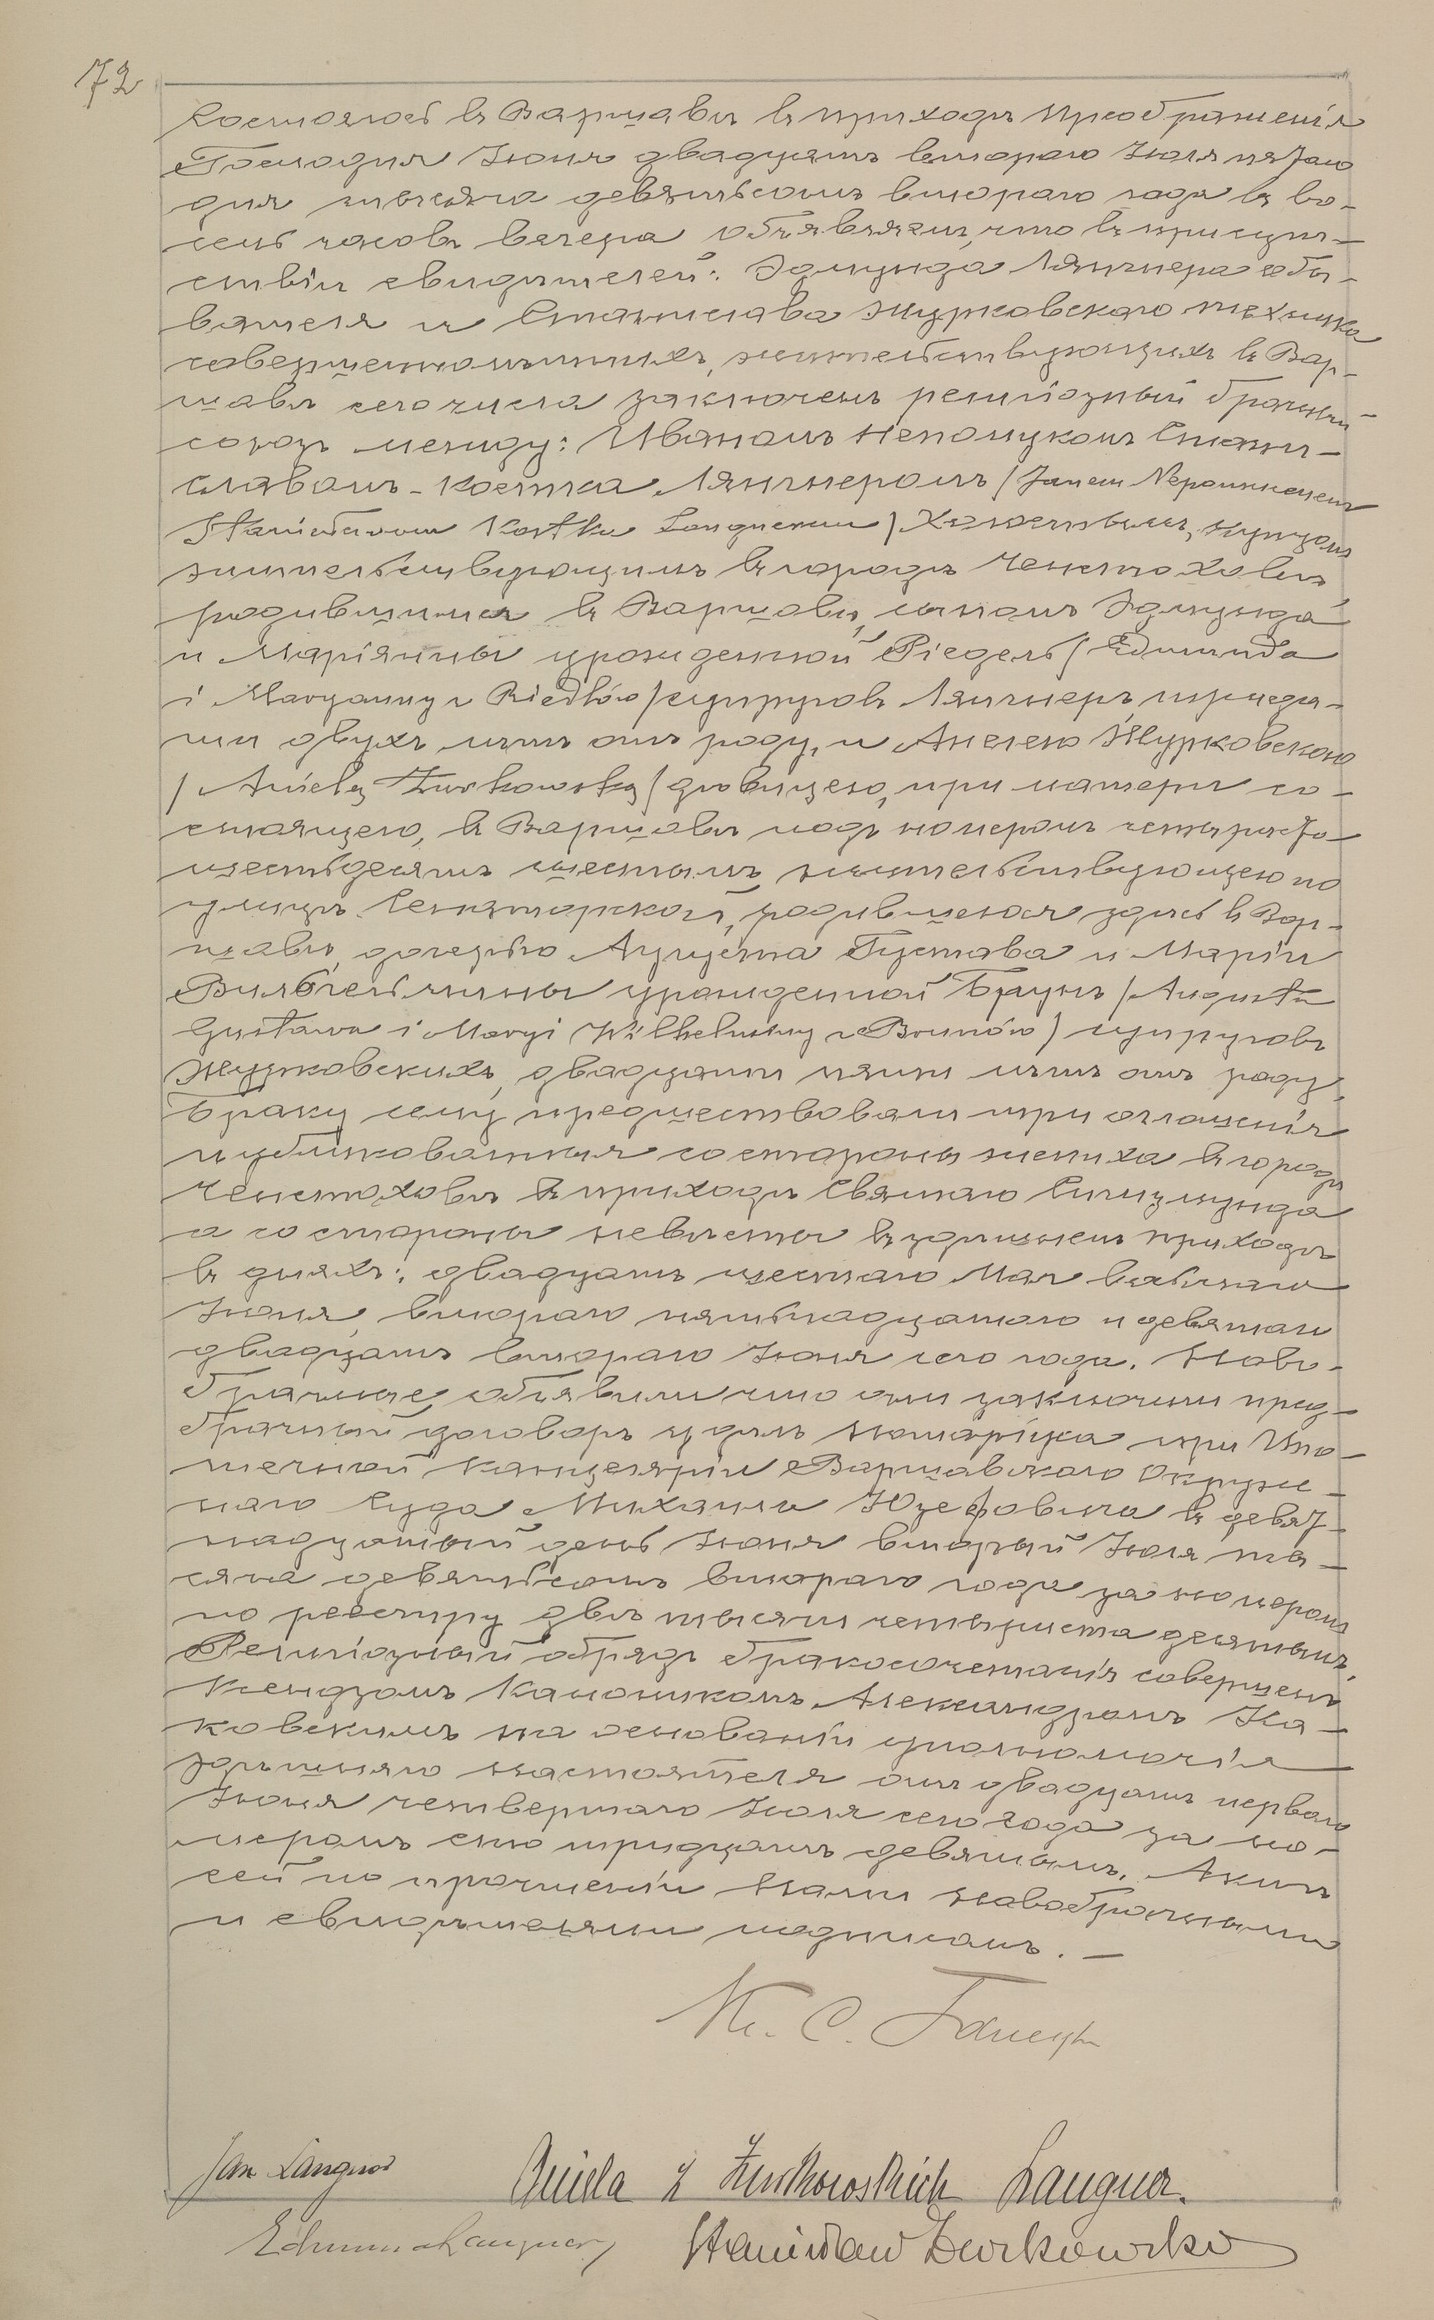 72
Состоялось въ Варшавѣ въ приходѣ Преображенія
Господня Іюня двадцать втораго Іюля пятаго
дня тысяча девятьсотъ втораго года въ во-
семь часовъ вечера. Объявляемъ, что въ присут-
ствіи свидѣтелей: Эдмунда Лянгнера обы-
вателя и Станислава Журковскаго техника
совершеннолѣтнихъ, жительствующихъ въ Вар-
шавѣ сего числа заключенъ религіозный брачный
союзъ между: Иваномъ Непомукомъ Стани-
славомъ-Костка Лянгнеромъ /Janem Nepomucenem
Stanisławem Kostką Langnerem/ Холостымъ, купцомъ
жительствующимъ въ городѣ Ченстоховѣ
родившимся въ Варшавѣ, сыномъ Эдмунда
и Маріянны урожденной Ридель /Edmunda
i Maryanny z Riedlów/ супруговъ Лянгнеръ тридца-
ти двухъ лѣтъ отъ роду, и Анелею Журковскою
/Anielą Żurkowską/ дѣвицею, при матери со-
стоящею, въ Варшавѣ подъ номеромъ четыреста
шестьдесятъ шестымъ жительствующею по
улицѣ Сенаторской, родившеюся здѣсь въ Вар-
шавѣ, дочерью Августа Густава и Маріи
Вильгельмины урожденной Брунъ /Augusta
Gustawa i Maryi Wilhelminy z Brunów/ супруговъ
Журковскихъ, двадцати пяти лѣтъ отъ роду.
Браку сему предшествовали три оглашенія
публикованныя со стороны жениха въ городѣ
Ченстоховѣ въ приходѣ Святаго Сигизмунда
а со стороны невѣсты въ здѣшнемъ приходѣ
въ дняхъ: двадцать шестаго Мая восьмаго
Іюня, втораго пятнадцатаго и девятаго
двадцать втораго Іюня сего года. Ново-
брачные объявили что они заключили пред-
брачный договоръ у дѣлъ нотаріуса при Ипо-
течной Канцеляріи Варшавскаго Окруж-
наго Суда Михаила Юзефовича въ девят-
надцатый день Іюня вторый Іюля ты-
сяча девятьсотъ втораго года за номеромъ
по реестру двѣ тысячи четыреста десятымъ.
Религіозный обрядъ бракосочетанія совершенъ
Ксендзомъ Каноникомъ Александромъ
ковскимъ на основаніи уполномочія
здѣшняго настоятеля отъ двадцать перваго
Іюня четвертаго Іюля сего года за но-
меромъ сто тридцать девятымъ. Актъ
сей по прочтеніи Нами новобрачными
и свидѣтелями подписанъ. —
Кс. С.
Jan Langner
Aniela z Żurkowskich Langner.
Edmund Langner
Stanisław Żurkowski